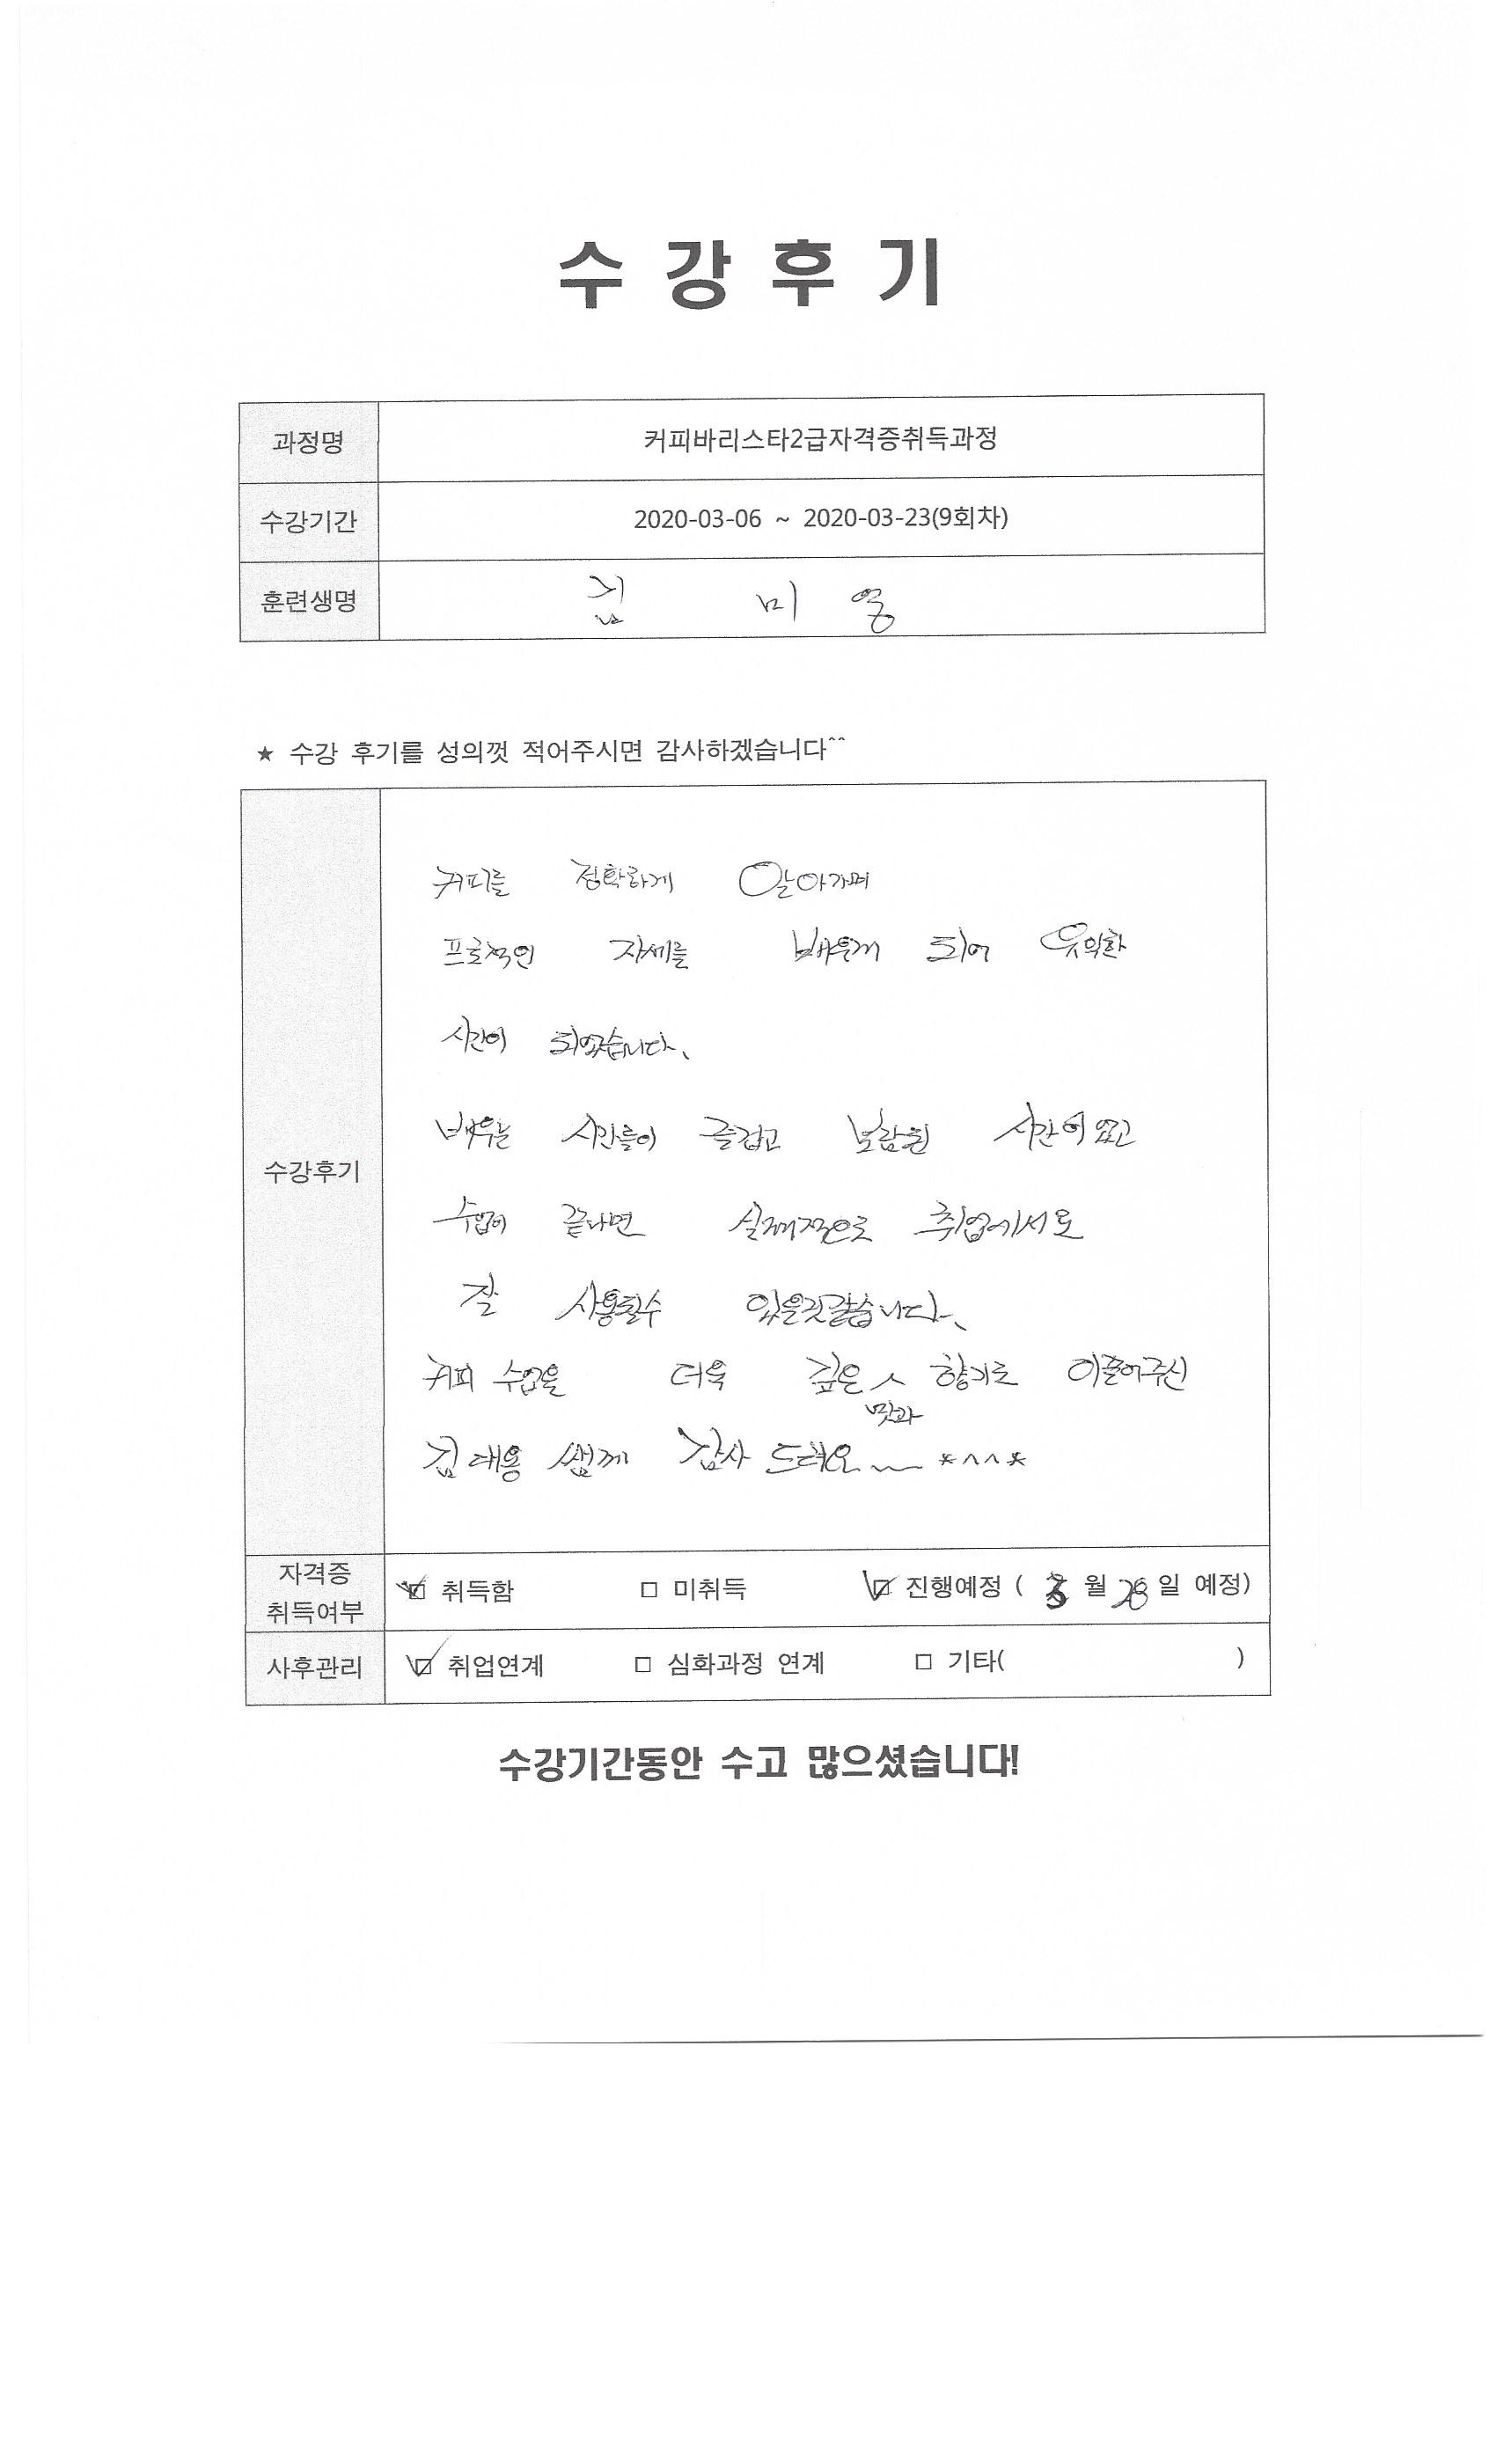 수 강 후 기
과정명 커피바리스타2급자격증취득과정
수강기간 2020-03-06 ~ 2020-03-23(9회차)
훈련생명 김 미 영
★ 수강 후기를 성의껏 적어주시면 감사하겠습니다^^
수강후기
커피를 정확하게 알아가며
프로적인 자세를 배우게 되어 유익한
시간이 되었습니다.
배우는 시간들이 즐겁고 보람된 시간이었고
수업이 끝나면 실제적으로 취업에서도
잘 사용될수 있을것같습니다.
커피 수업을 더욱 깊은 맛과 향기로 이끌어주신
김대용 쌤께 감사 드려요~~ *^^*
자격증 취득여부 ☑ 취득함 □ 미취득 ☑ 진행예정 ( 3 월 28 일 예정)
사후관리 ☑ 취업연계 □ 심화과정 연계 □ 기타( )
수강기간동안 수고 많으셨습니다!